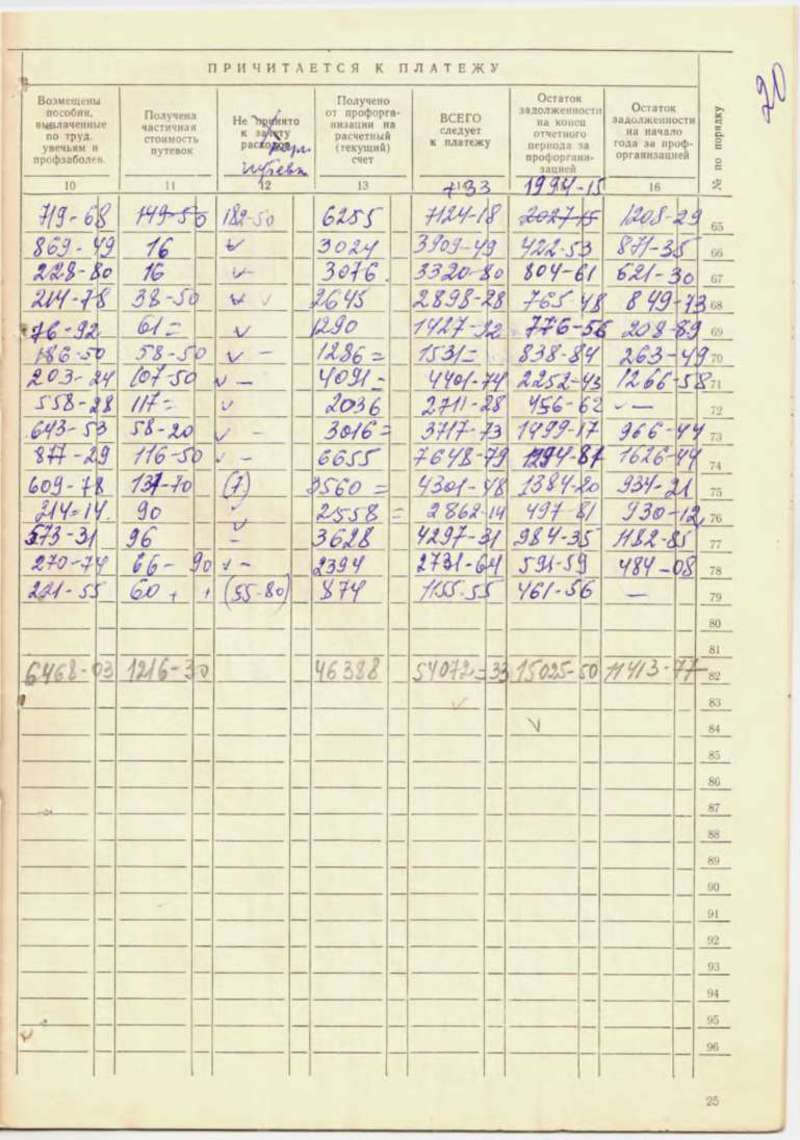 20
ПРИЧИТАЕТСЯ К ПЛАТЕЖУ
Возмещены пособия, выплаченные по труд. увечьям и профзаболев.
Получена частичная стоимость путевок
Не принято к зачету расходов
Получено от профорганизации на расчетный (текущий) счет
ВСЕГО следует к платежу
Остаток задолженности на конец отчетного периода за профорганизацией
Остаток задолженности на начало года за профорганизацией
№ по порядку
10 11 12 13 16
7133 1994-15
719-68 149-50 182-50 6255 7124-18 2027-15 1208-29 65
869-49 16 v 3024 3909-49 422-53 871-35 66
228-80 16 v- 3076 3320-80 804-61 621-30 67
214-78 38-50 v v 2645 2898-28 765-48 849-73 68
76-92 61= v 1290 1427-92 776-56 208-89 69
186-50 58-50 v - 1286= 1531= 838-84 263-49 70
203-24 107-50 v - 4091= 4401-74 2252-43 1266-58 71
558-28 117= v 2036 2711-28 456-62 v - 72
643-53 58-20 v - 3016= 3717-73 1499-17 966-44 73
877-29 116-50 v - 6655 7648-79 1294-87 1626-44 74
609-78 131-70 (7) 3560= 4301-48 1384-20 934-21 75
214=14 90 v 2558= 2862-14 497-81 930-12 76
573-31 96 - 3628 4297-31 984-35 1182-85 77
270-74 66-90 v - 2394 2731-64 591-59 484-08 78
221-55 60 (55-80) 874 1155-55 461-56 - 79
80
81
6468-03 1216-30 46388 54072=33 15025-50 11413-77 82
v 83
v 84
85
86
87
88
89
90
91
92
93
94
95
96
25